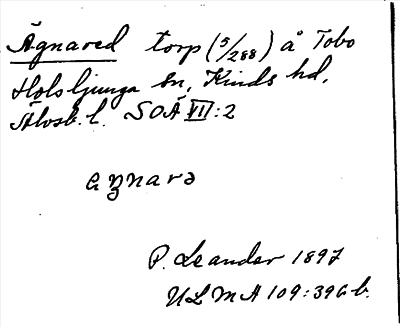 Ägnared torp (5/288) å Tobo
Holsljunga sn, Kinds hd,
Älvsb. l. SOÄ VII:2
aŋnarə
P. Leander 1897
ULMA 109:396 b.